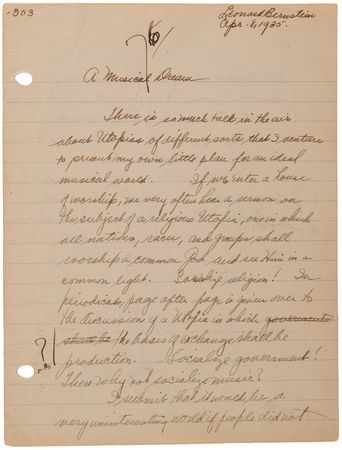 -303
Leonard Bernstein
Apr. 8, 1935.
A Musical Dream
There is so much talk in the air
about Utopias of different sorts that I venture
to present my own little plan for an ideal
musical world. If we enter a house
of worship, we very often hear a sermon on
the subject of a religious Utopia, one in which
all nations, races, and groups, shall
worship a common God and see Him in a
common light. Socialize religion! In
periodicals, page after page is given over to
the discussion of a Utopia in which governments
should be the basis of exchange shall be
production. Socialize government!
Then why not socialize music?
I submit that it would be a
very uninteresting world if people did not
?